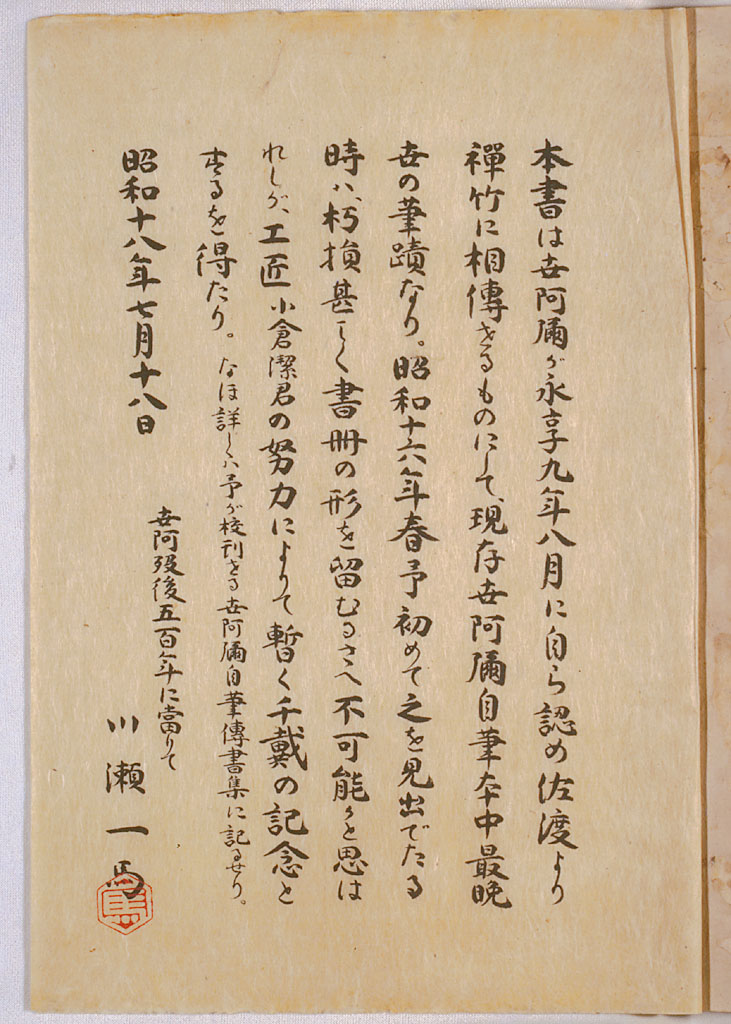 本書は世阿彌が永享九年八月に自ら認め佐渡より
禪竹に相傳せるものにして、現存世阿彌自筆本中最晩
世の筆蹟なり。昭和十六年春予初めて之を見出でたる
時ハ、朽損甚しく書册の形を留むるさへ不可能かと思は
れしが、工匠小倉潔君の努力によりて暫く千戴の記念と
するを得たり。なほ詳しくハ予が校刊せる世阿彌自筆傳書集に記るせり。
昭和十八年七月十八日
世阿歿後五百年に當りて
川瀬一馬
馬